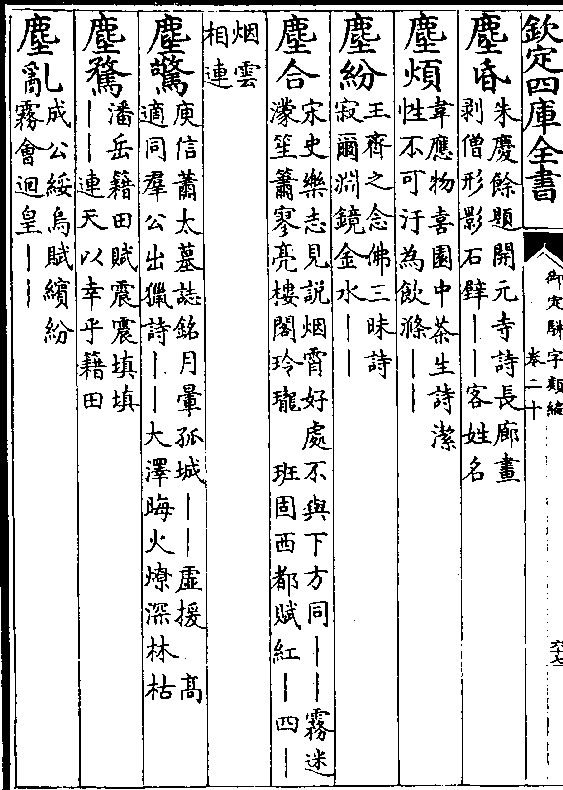 欽定四庫全書
御定駢字類編
卷二十
六十七
塵昏
朱慶餘題開元寺詩長廊畫
剥僧形影石壁——客姓名
塵煩
韋應物喜園中茶生詩潔
性不可汙為飲滌——
塵紛
王齊之念佛三昧詩
寂爾淵鏡金水——
塵合
宋史樂志見説烟霄好處不與下方同——霧迷
濛笙簫寥亮樓閣玲瓏 班固西都賦紅—四—
烟雲
相連
塵驚
庾信蕭太墓誌銘月暈孤城——虛援 高
適同羣公出獵詩——大澤晦火燎深林枯
塵騖
潘岳籍田賦震震填填
——連天以幸乎籍田
塵亂
成公綏烏賦繽紛
霧會迴皇——